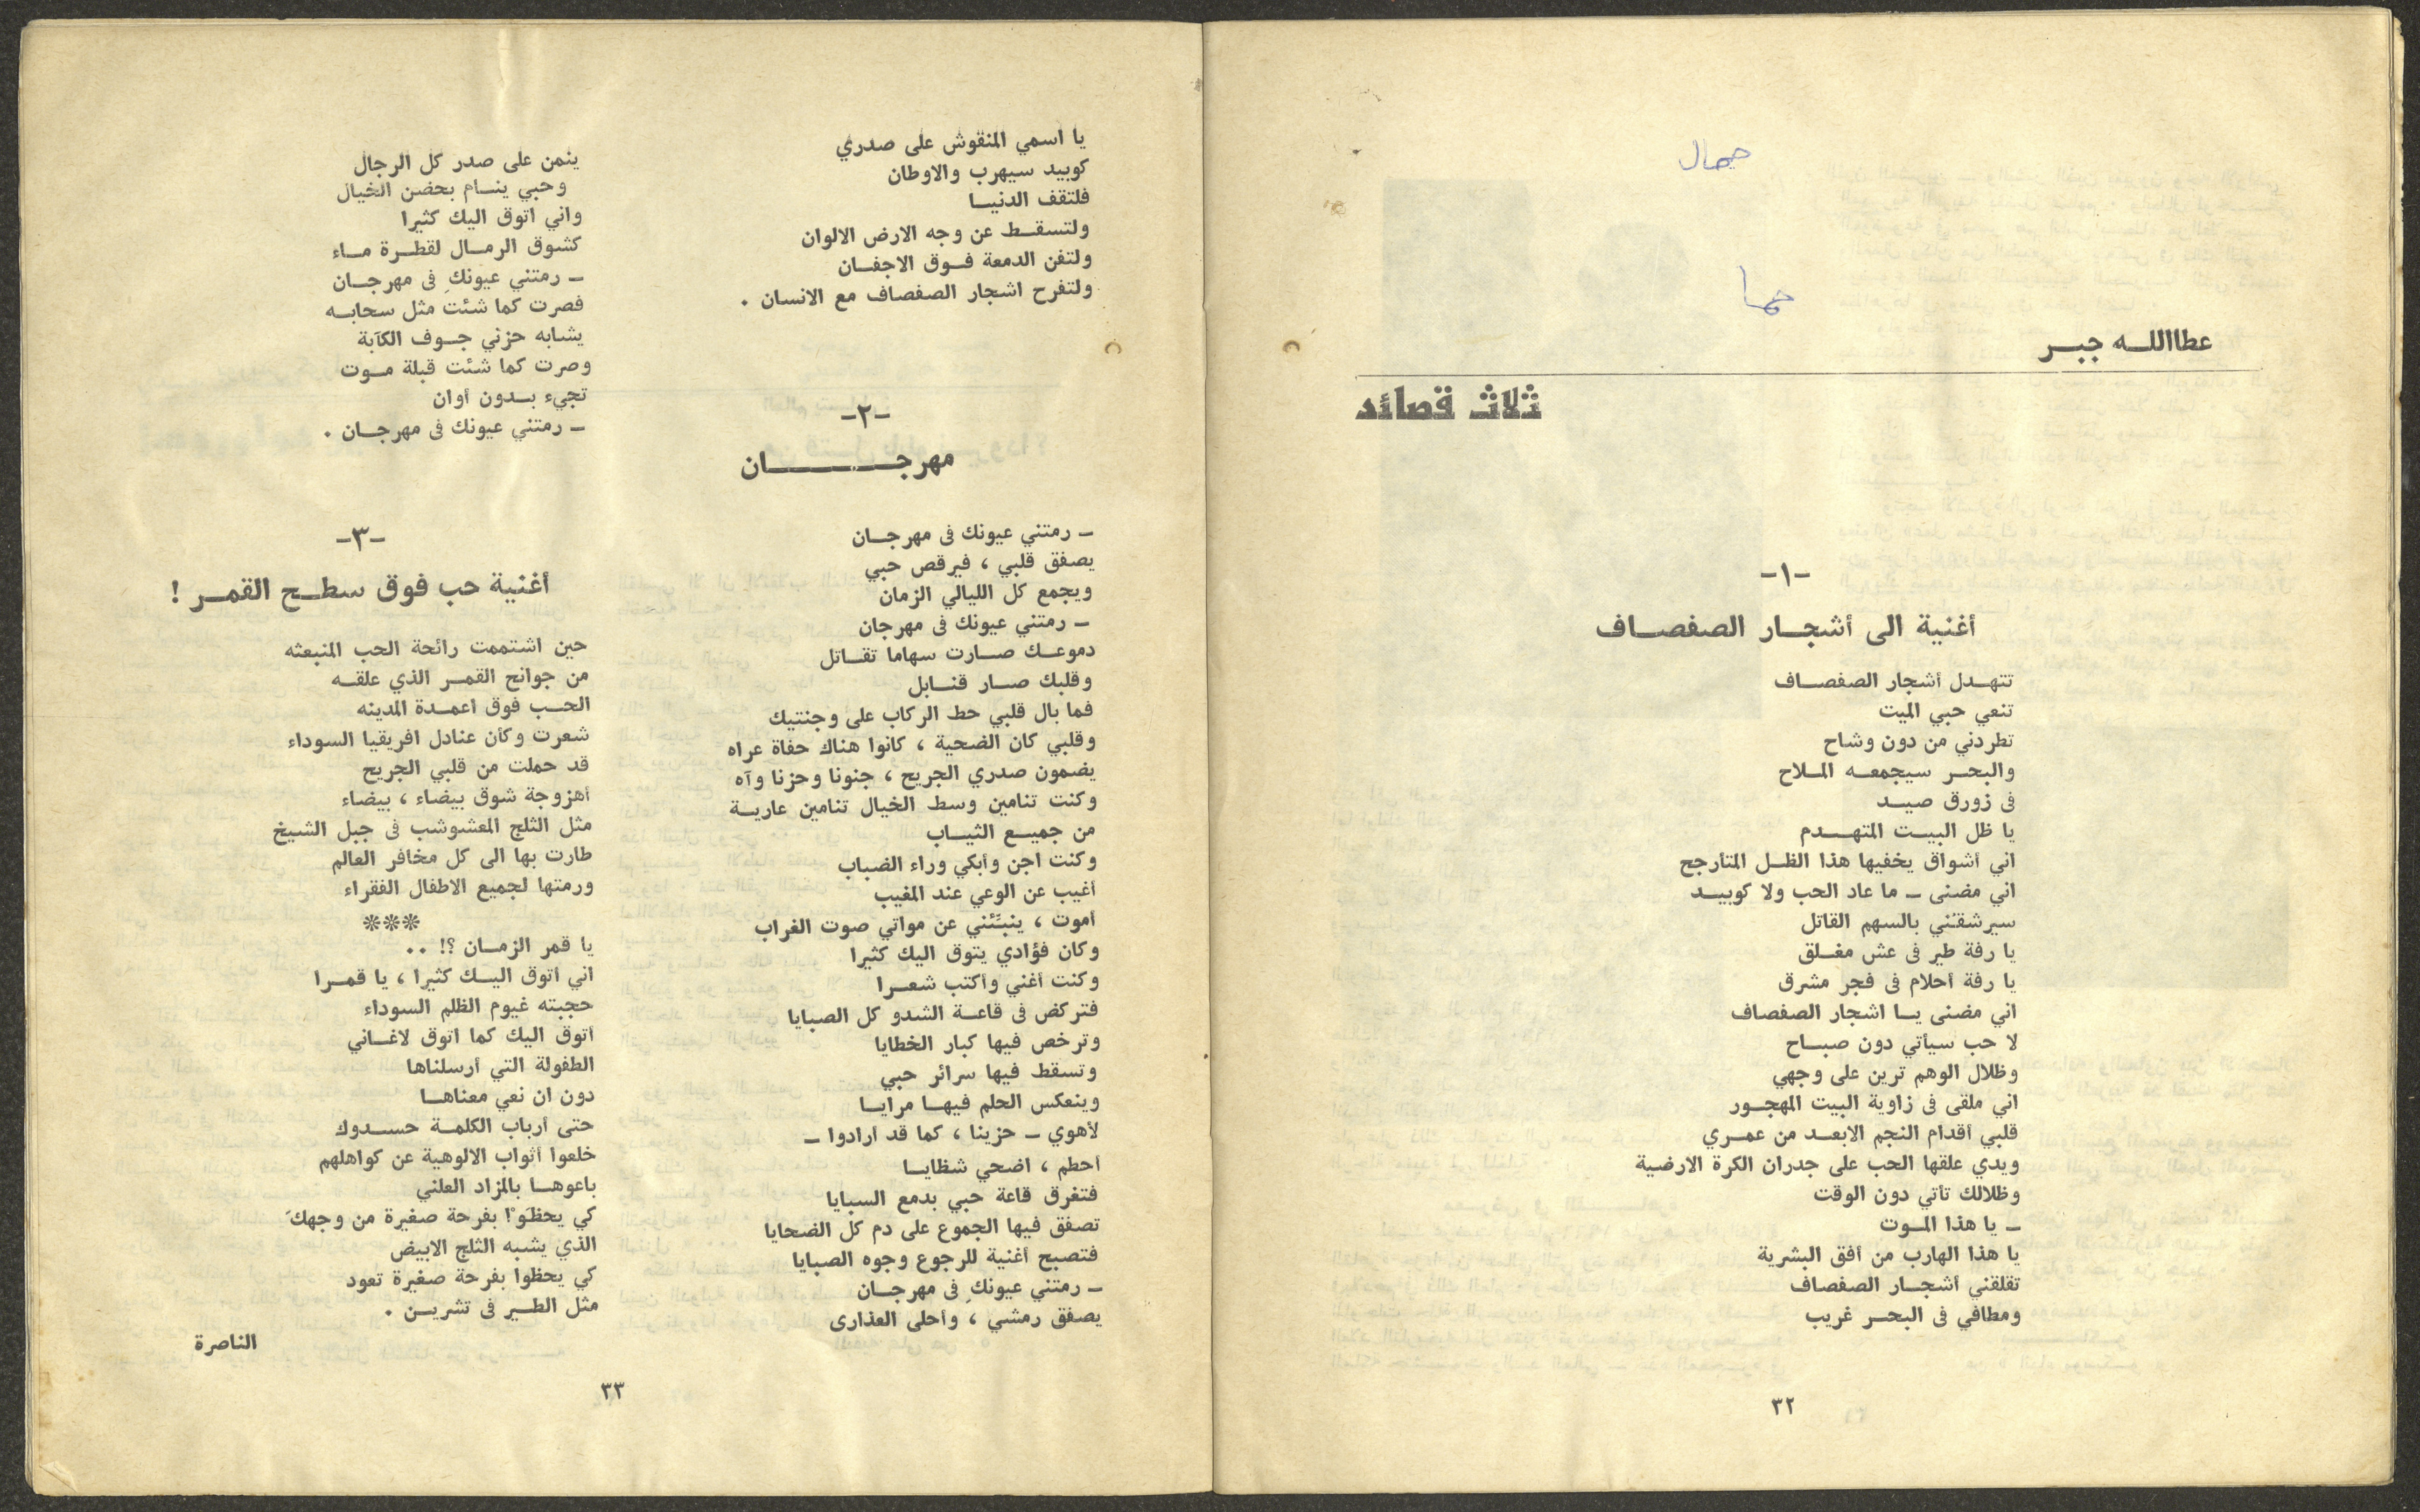 جمال
حما
عطاالله جبر
ثلاث قصائد
-١-
أغنية الى أشجار الصفصاف
تتهدل أشجار الصفصاف
تنعي حبي الميت
تطردني من دون وشاح
والبحر سيجمعه الملاح
في زورق صيد
يا ظل البيت المتهدم
اني أشواق يخفيها هذا الظل المتأرجح
اني مضنى - ما عاد الحب ولا كوبيد
سيرشقني بالسهم القاتل
يا رفة طير في عش مغلق
يا رفة أحلام في فجر مشرق
اني مضنى يا اشجار الصفصاف
لا حب سيأتي دون صباح
وظلال الوهم ترين على وجهي
اني ملقى في زاوية البيت المهجور
قلبي أقدام النجم الابعد من عمري
ويدي علقها الحب على جدران الكرة الارضية
وظلالك تأتي دون الوقت
- يا هذا الموت
يا هذا الهارب من أفق البشرية
تقلقني أشجار الصفصاف
ومطافي في البحر غريب
٣٢
يا اسمي المنقوش على صدري
كوبيد سيهرب والاوطان
فلتقف الدنيا
ولتسقط عن وجه الارض الالوان
ولتفن الدمعة فوق الاجفان
ولتفرح اشجار الصفصاف مع الانسان .
-٢-
مهرجان
- رمتني عيونك في مهرجان
يصفق قلبي ، فيرقص حبي
ويجمع كل الليالي الزمان
- رمتني عيونك في مهرجان
دموعك صارت سهاما تقاتل
وقلبك صار قنابل
فما بال قلبي حط الركاب على وجنتيك
وقلبي كان الضحية ، كانوا هناك حفاة عراه
يضمون صدري الجريح ، جنونا وحزنا وآه
وكنت تنامين وسط الخيال تنامين عارية
من جميع الثياب
وكنت اجن وأبكي وراء الضباب
أغيب عن الوعي عند المغيب
أموت ، ينبّئني عن مواتي صوت الغراب
وكان فؤادي يتوق اليك كثيرا
وكنت أغني وأكتب شعرا
فتركض في قاعة الشدو كل الصبايا
وترخص فيها كبار الخطايا
وتسقط فيها سرائر حبي
وينعكس الحلم فيها مرايا
لأهوي - حزينا ، كما قد أرادوا -
أحطم ، اضحي شظايا
فتغرق قاعة حبي بدمع السبايا
تصفق فيها الجموع على دم كل الضحايا
فتصبح أغنية للرجوع وجوه الصبايا
- رمتني عيونكِ في مهرجان
يصفق رمشي ، وأحلى العذارى
ينمن على صدر كل الرجال
وحبي ينام بحضن الخيال
واني اتوق اليك كثيرا
كشوق الرمال لقطرة ماء
- رمتني عيونكِ في مهرجان
فصرت كما شئت مثل سحابه
يشابه حزني جوف الكآبة
وصرت كما شئت قبلة موت
تجيء بدون أوان
- رمتني عيونك في مهرجان .
-٣-
أغنية حب فوق سطح القمر !
حين اشتممت رائحة الحب المنبعثه
من جوانح القمر الذي علقه
الحب فوق اعمدة المدينه
شعرت وكأن عنادل افريقيا السوداء
قد حملت من قلبي الجريح
أهزوجة شوق بيضاء ، بيضاء
مثل الثلج المعشوشب في جبل الشيخ
طارت بها الى كل مخافر العالم
ورمتها لجميع الاطفال الفقراء
***
يا قمر الزمان ؟! ..
اني أتوق اليك كثيرا ، يا قمرا
حجبته غيوم الظلم السوداء
أتوق اليك كما اتوق لاغاني
الطفولة التي أرسلناها
دون ان نعي معناها
حتى أرباب الكلمة حسدوك
خلعوا أثواب الالوهية عن كواهلهم
باعوها بالمزاد العلني
كي يحظَوْا بفرحة صغيرة من وجهكَ
الذي يشبه الثلج الابيض
كي يحظوا بفرحة صغيرة تعود
مثل الطير في تشرين .
الناصرة
٣٣